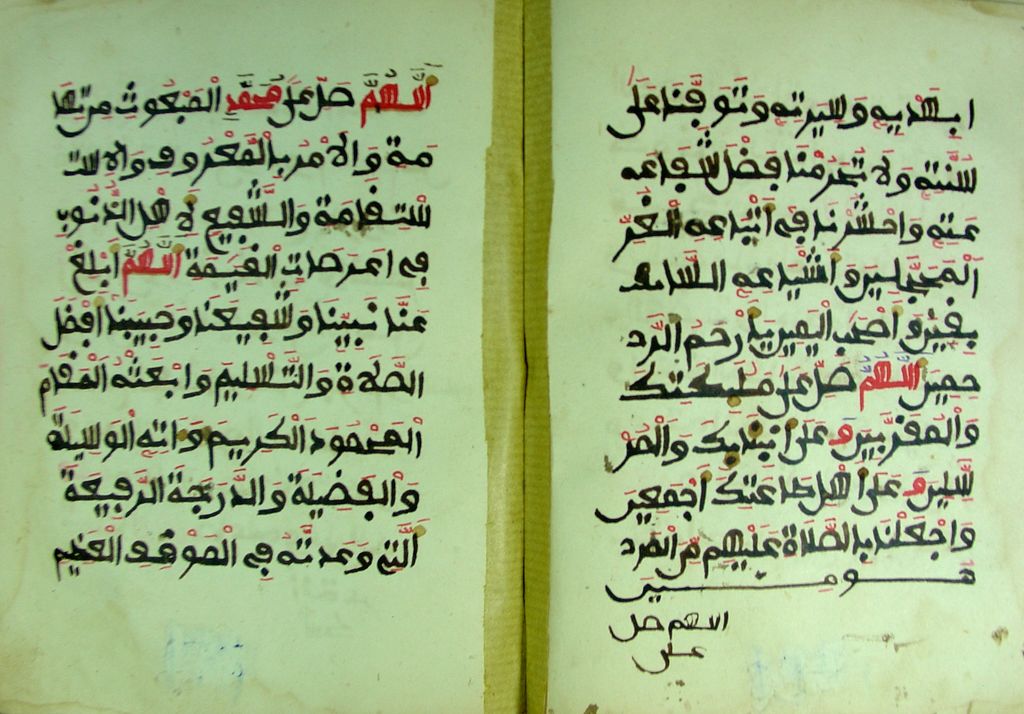 ابهديه وسيرته وتوفنا على
سنته ولا تحرمنا فضل شفاعه
عته واحشرنا في اتباعه الغر
المحجلين واشياعه السابـ
بقين واصحب اليمين يا ارحم الرا
حمين اللهم صل على ملئكتك
والمقربين وعلى انبيايك والمر
سلين وعلى اهل طاعتك اجمعين
واجعلنا بالصلاة عليهم من المر
حومين
اللهم صل
على
اللهم صل على محمد المبعوث من تها
مة والامر بالمعروف والاست
ستقامة والشفيع لاهل الذنوب
في اعرصات القيمة اللهم ابلغ
عنا نبينا وشفيعنا وحبيبنا افضل
الصلاة والتسليم وابعثه المقام
المحمود الكريم واته الوسيلة
والفضيلة والدرجة الرفيعة
التي وعدته في الموقف العظيم